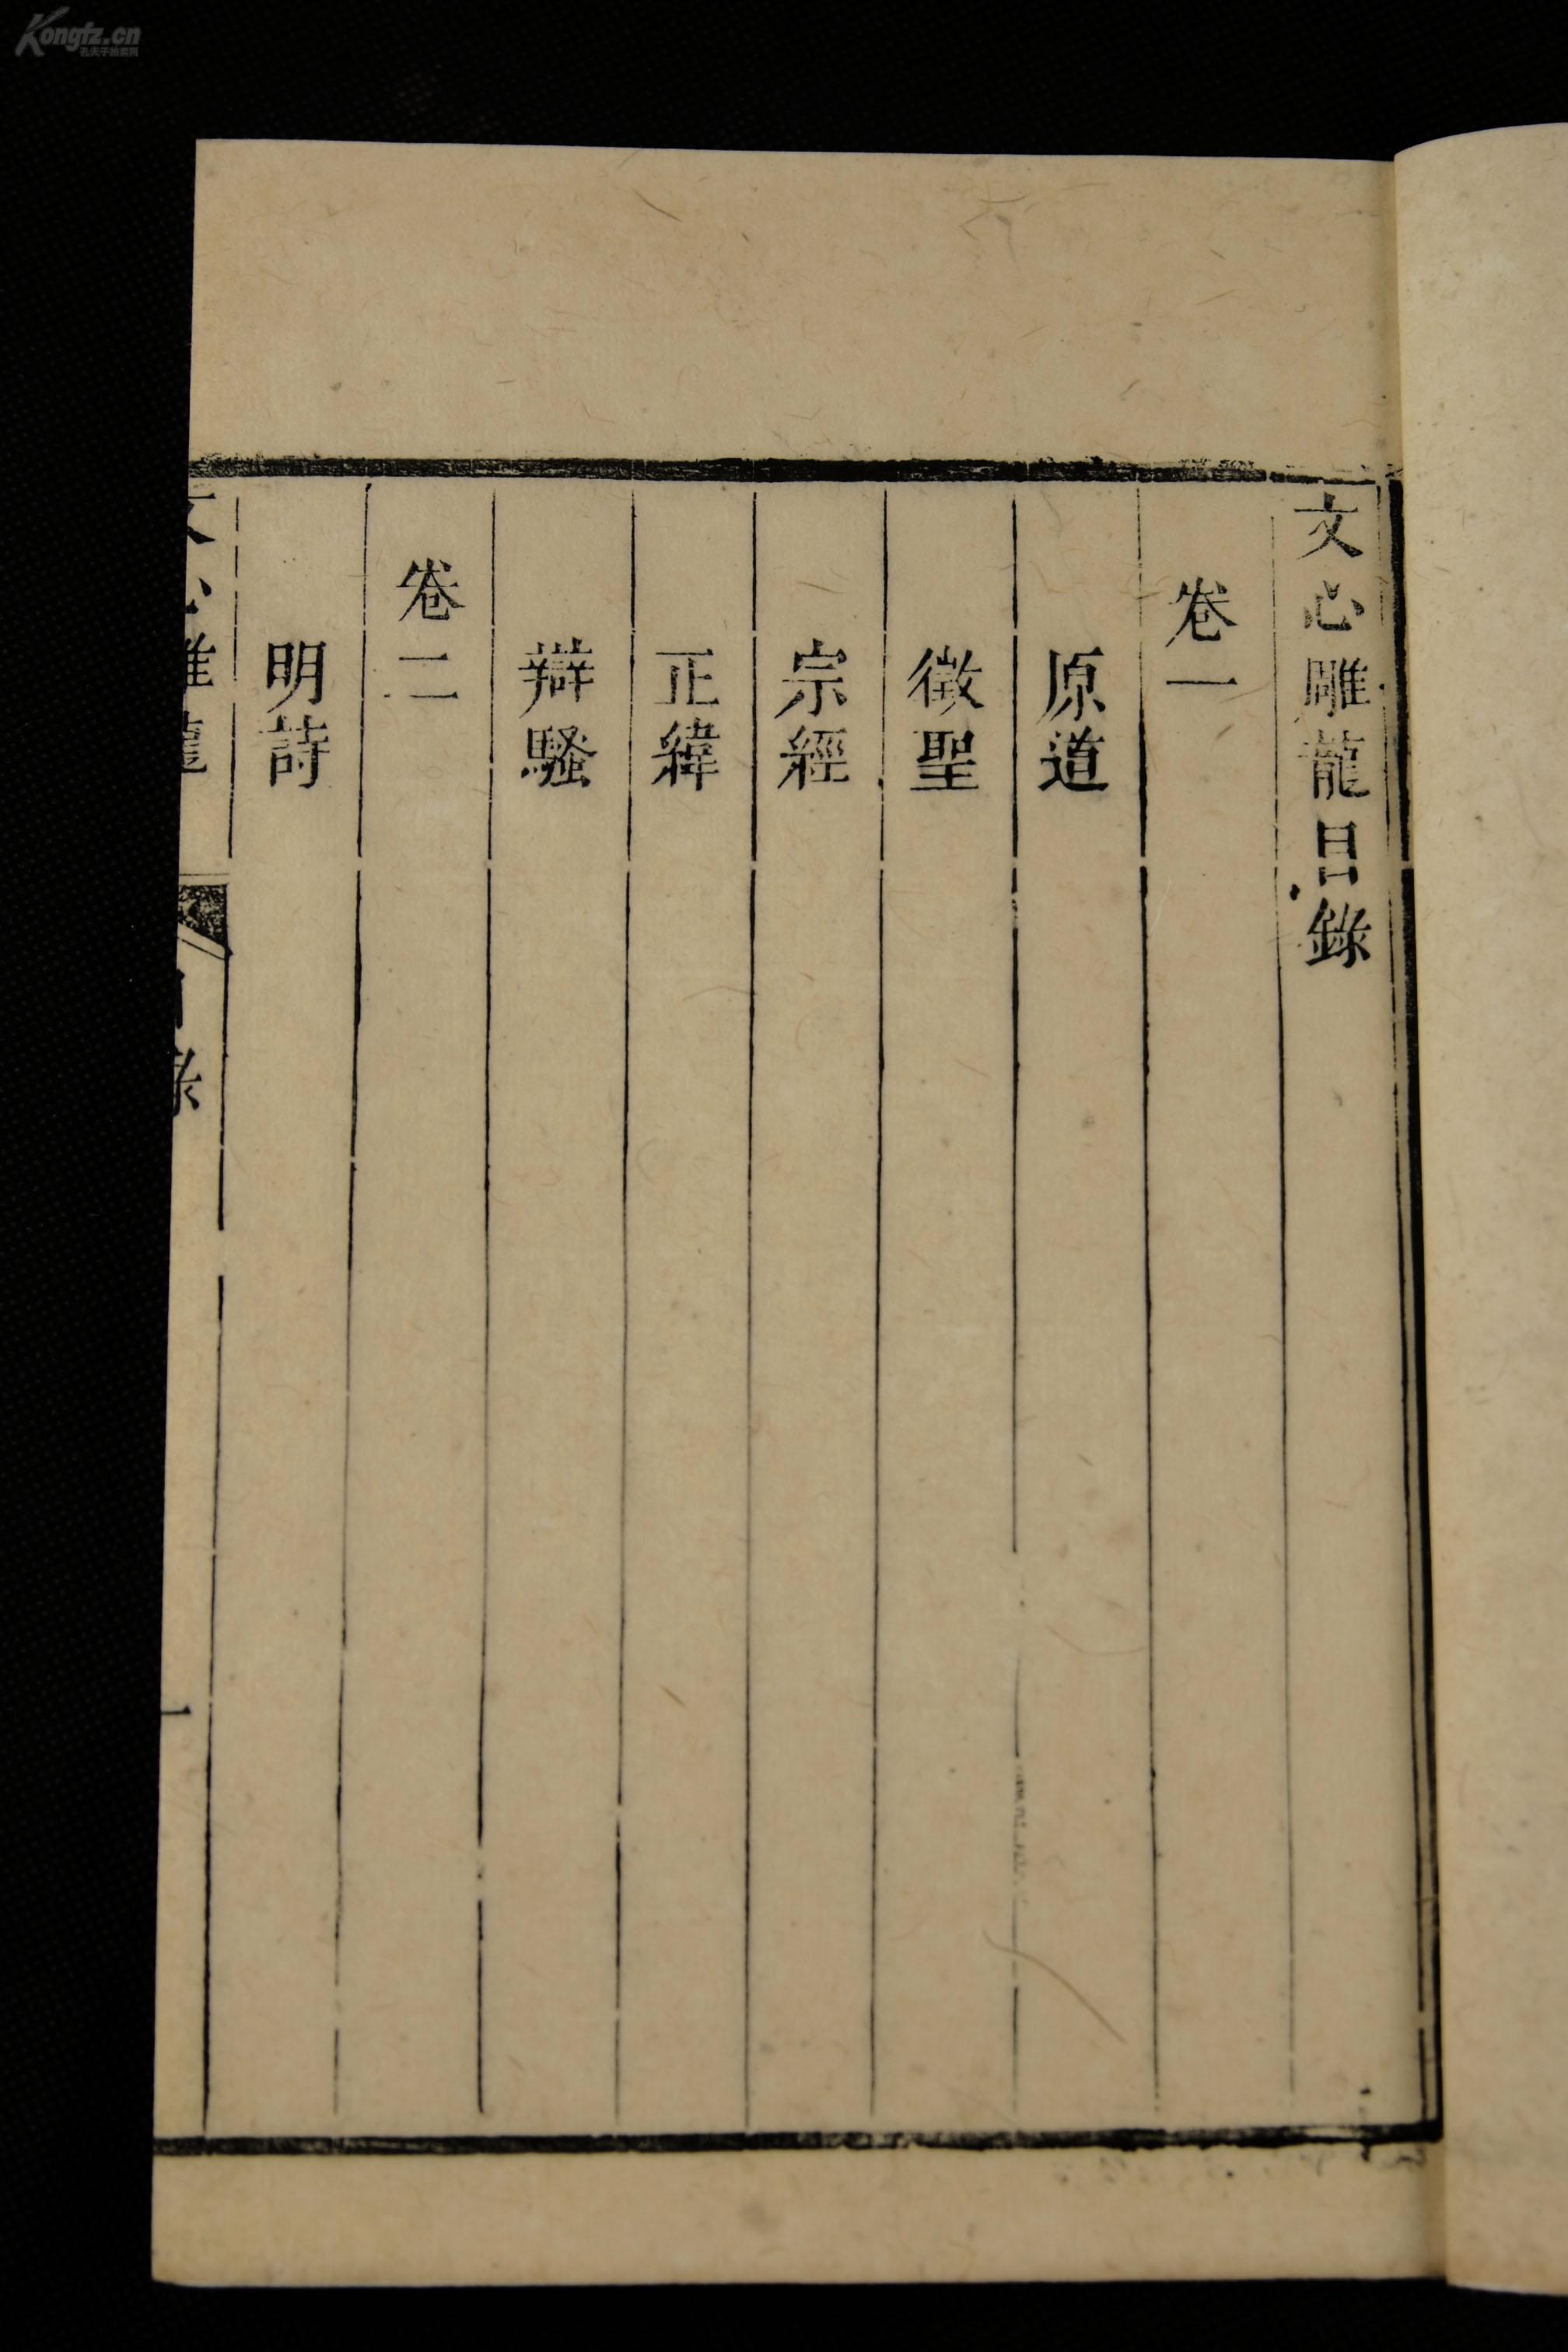 文心雕龍目錄
卷一
原道
徵聖
宗經
正緯
辯騷
卷二
明詩
文心雕龍
目錄
一
Kongfz.cn
孔夫子拍卖网